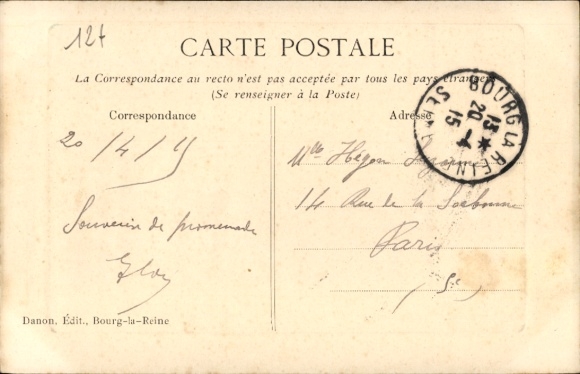 12t
CARTE POSTALE
La Correspondance au recto n'est pas acceptée par tous les pays étrangers
(Se renseigner à la Poste)
Correspondance
Adresse
BOURG LA REINE
SEINE
13 *
20 - 4
15
20/4/15
Souvenir de promenade
Mlle Hégon
14 Rue de la Sorbonne
Paris
Danon, Édit., Bourg-la-Reine